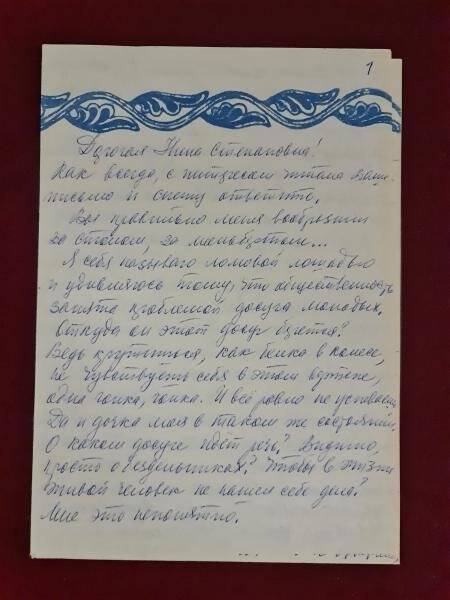 1
Дорогая Нина Степановна!
Как всегда, с интересом читала Ваше
письмо и спешу ответить.
Вы правильно меня вообразили
за столом, за
Я себя называю ломовой лошадью
и удивляюсь тому, что общественность
занята проблемой досуга молодых.
Откуда он этот досуг берется?
Ведь крутишься, как белка в колесе,
не чувствуешь себя в этом
одна гонка, гонка. И всё равно не успеваешь.
Да и дочка моя в таком же состоянии.
О каком досуге идет речь? Видимо,
просто о бездельниках? Чтобы в жизни
живой человек не нашел себе дела?
Мне это непонятно.